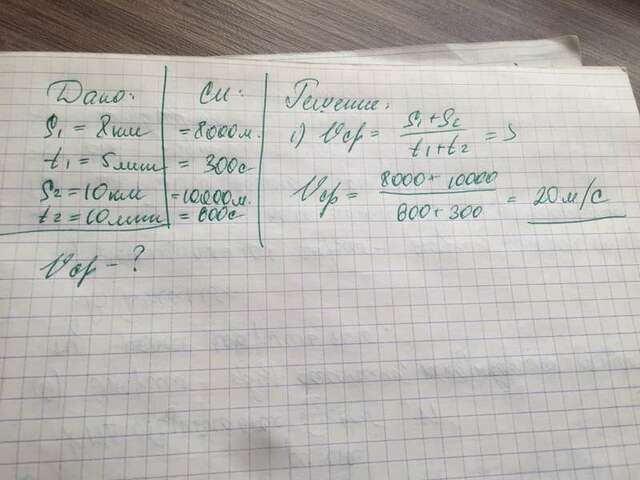 Дано:
S₁ = 8км
t₁ = 5мин
S₂ = 10км
t₂ = 10мин
Vср - ?
СИ:
= 8000м.
= 300с
= 10000м.
= 600с
Решение:
1) Vср = (S₁ + S₂) / (t₁ + t₂) = S
Vср = (8000 + 10000) / (600 + 300) = 20 м/с